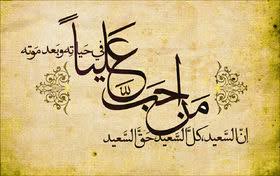 مَن احَبَّ عَليّاً في حَيَاتِه وبَعد مَوته
إنّ السَعيد، كلَّ السَعيد، حَقَّ السَعيد